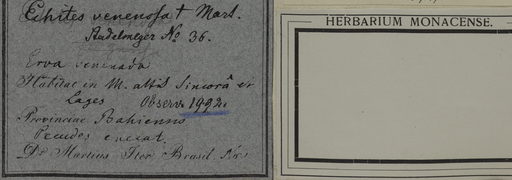 Echites venenosa † Mart.
Stadelmeyer No 36.
Erva venenada
Habitat in M. altis Sincorâ et
Lages Observ. 1992.
Provinciae Bahiensis
Pecudes enecat.
Dr Martius Iter Brasil.
HERBARIUM MONACENSE.